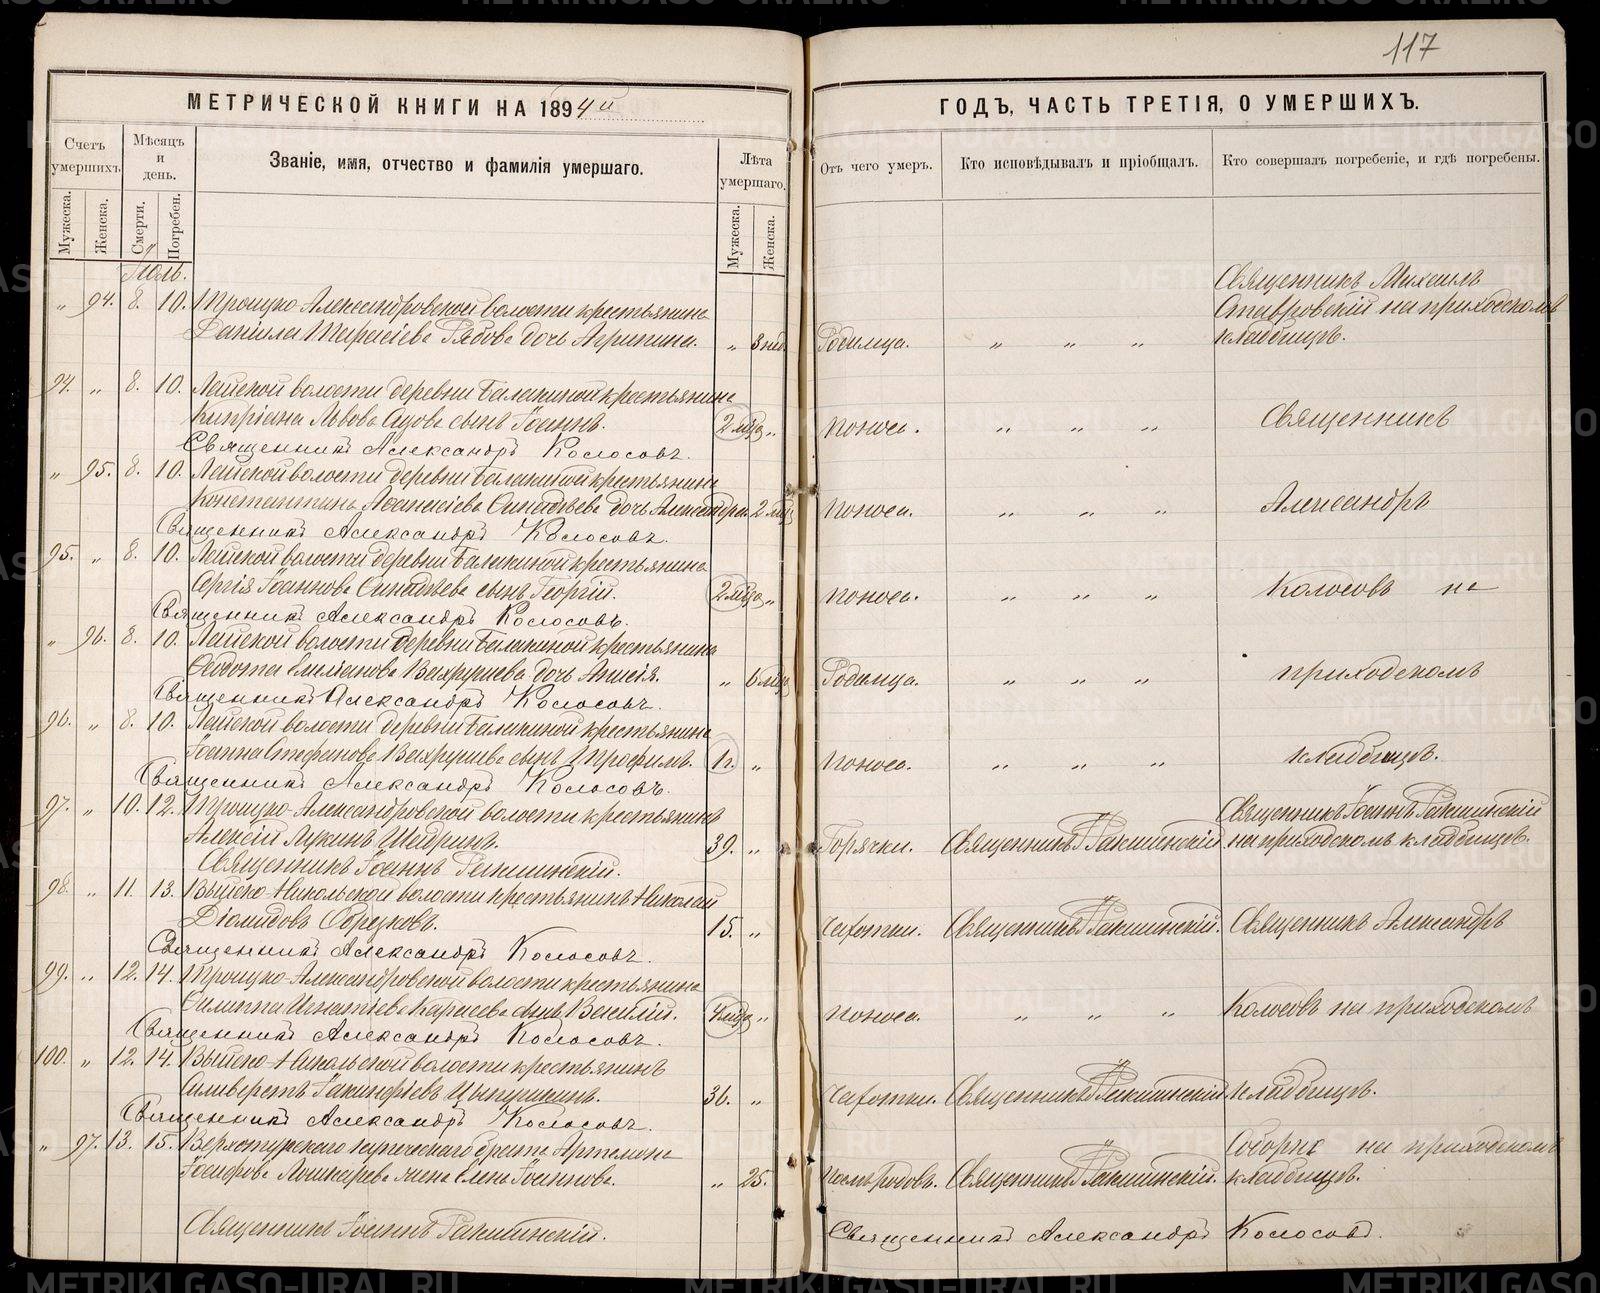 117
МЕТРИЧЕСКОЙ КНИГИ НА 1894й
ГОДЪ, ЧАСТЬ ТРЕТІЯ, О УМЕРШИХЪ.
Счетъ умершихъ.
Мѣсяцъ и день.
Званіе, имя, отчество и фамилія умершаго.
Лѣта умершаго.
Отъ чего умеръ.
Кто исповѣдывалъ и пріобщалъ.
Кто совершалъ погребеніе, и гдѣ погребены.
Мужеска.
Женска.
Смерти.
Погребен.
Мужеска.
Женска.
Іюль.
Священникъ Михаилъ
„ 94. 8. 10. Троицко-Александровской волости крестьянина
Ставровскій на приходскомъ
Даніила Тарасіева Рябова дочь Агрипина. „ 3 нед. Родимца. „ „ „ кладбищѣ.
94. „ 8. 10. Лайской волости деревни Балакиной крестьянина
Кипріана Львова сынъ Іоаннъ. 2 мца „ поноса. „ „ „ Священникъ
Священникъ Александръ Колосовъ.
„ 95. 8. 10. Лайской волости деревни Балакиной крестьянина
Константина дочь Александра. „ 2 мца поноса. „ „ „ Александръ
Священникъ Александръ Колосовъ.
95. „ 8. 10. Лайской волости деревни Балакиной крестьянина
Сергія Іоаннова сынъ Георгій. 2 мца „ поноса. „ „ „ Колосовъ на
Священникъ Александръ Колосовъ.
„ 96. 8. 10. Лайской волости деревни Балакиной крестьянина
Федота Вахрушева дочь Анисія. „ 6 мца Родимца. „ „ „ приходскомъ
Священникъ Александръ Колосовъ.
96. „ 8. 10. Лайской волости деревни Балакиной крестьянина
Іоанна Стефанова Вахрушева сынъ Трофимъ. 1 г. „ поноса. „ „ „ кладбищѣ.
Священникъ Александръ Колосовъ.
97. „ 10. 12. Троицко-Александровской волости крестьянинъ
Священникъ Іоаннъ
Алексій Лукинъ Щедринъ. 39. „ Горячки. Священникъ на приходскомъ кладбищѣ.
Священникъ Іоаннъ
98. „ 11. 13. Выйско-Никольской волости крестьянинъ Николай
Діомидовъ Обрезковъ. 15. „ Чахотки. Священникъ Священникъ Александръ
Священникъ Александръ Колосовъ.
99. „ 12. 14. Троицко-Александровской волости крестьянина
Филиппа Игнатіева Карасева сынъ Василій. 4 мца „ поноса. „ „ „ Колосовъ на приходскомъ
Священникъ Александръ Колосовъ.
100. „ 12. 14. Выйско-Никольской волости крестьянинъ
Сильверстъ Іакинфіевъ 36. „ Чахотки. Священникъ кладбищѣ.
Священникъ Александръ Колосовъ.
„ 97. 13. 15. Верхотурскаго купеческаго брата Артемона
Соборнѣ на приходскомъ
Іосифова жена Елена Іоаннова. „ 25. послѣ родовъ. Священникъ кладбищѣ.
Священникъ Іоаннъ
Священникъ Александръ Колосовъ.
METRIKI.GASO-URAL.RU